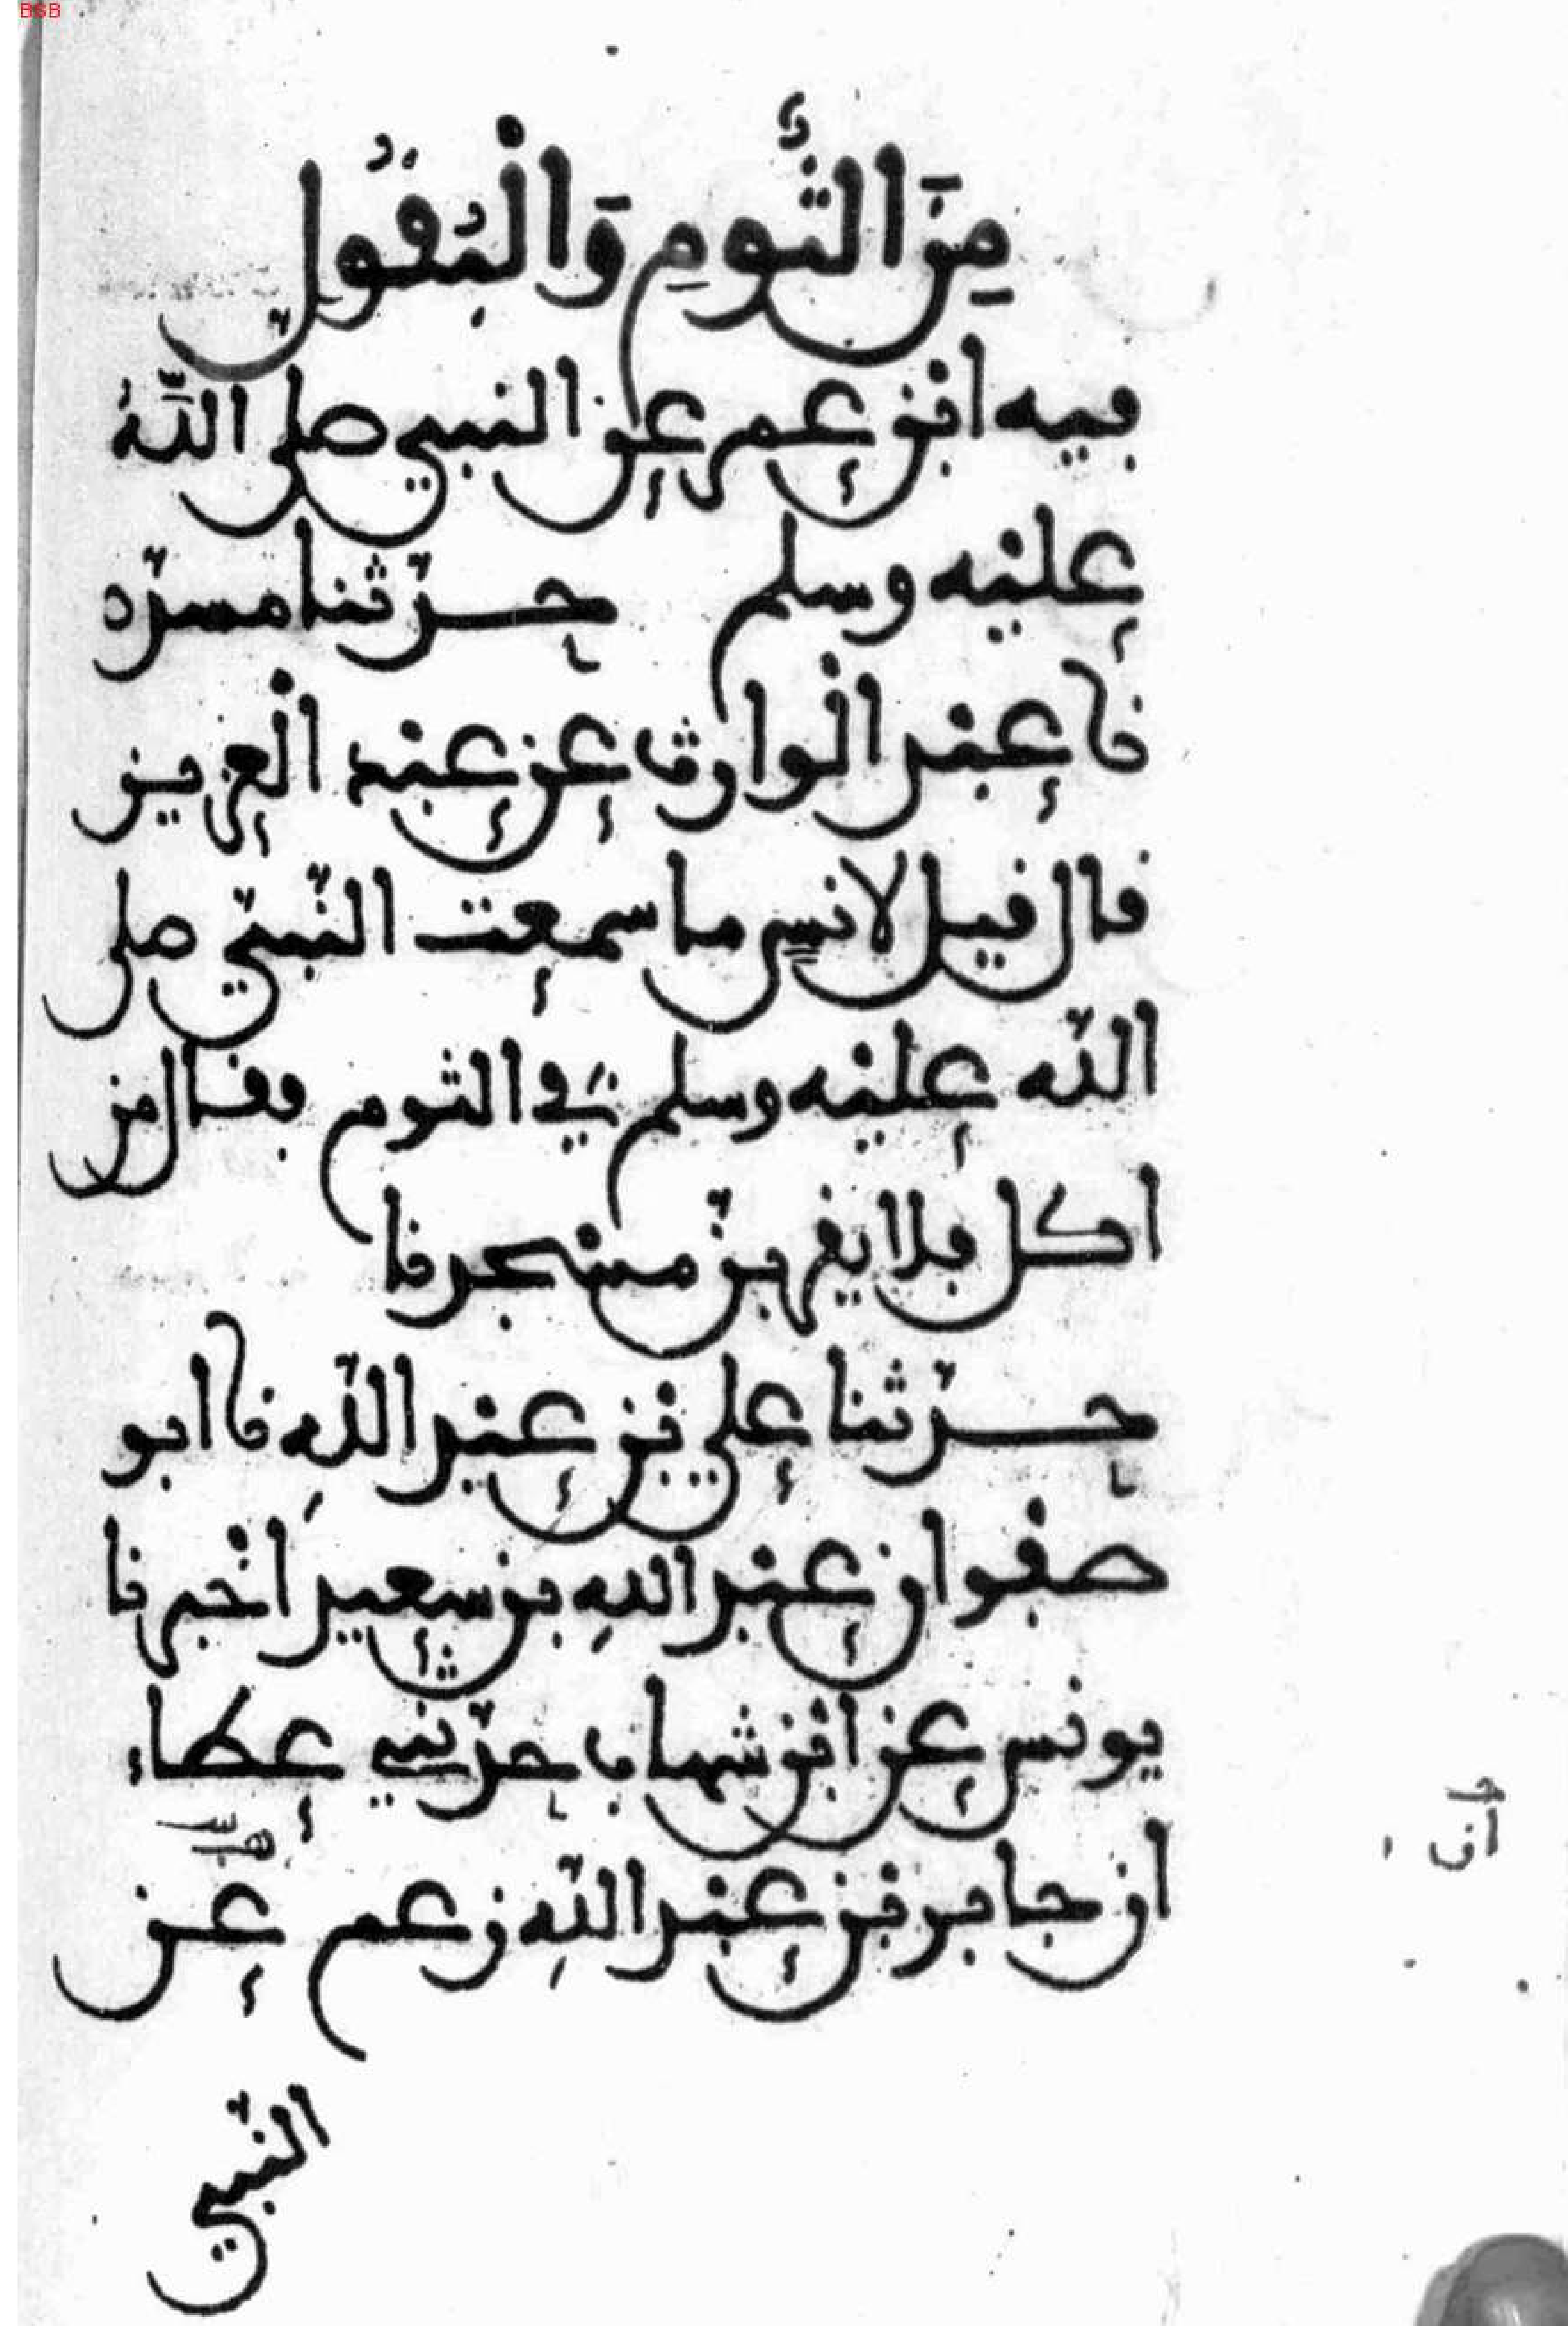 BSB
مِنَ الثُّومِ وَالْبُقُولِ
فيه ابن عمر عن النبي صلى اللَّهُ
عليْه وسلم حدّثنا مسدّد
نا عبْد الْوارث عن عبْد الْعزيز
قال قيل لانس ما سمعت النّبيّ صلى
اللّه عليْه وسلم في الثوم فقال من
اكل فلا يقربنّ مسْجدنا
حدّثنا علي بْن عبْد اللّهِ نا ابو
صفْوان عبْد اللهِ بن سعيد اَخْبرنا
يونس عن ابْن شهاب حدّثني عطاء
ان جابر بْن عبْد اللّهِ زعم عن
النّبي